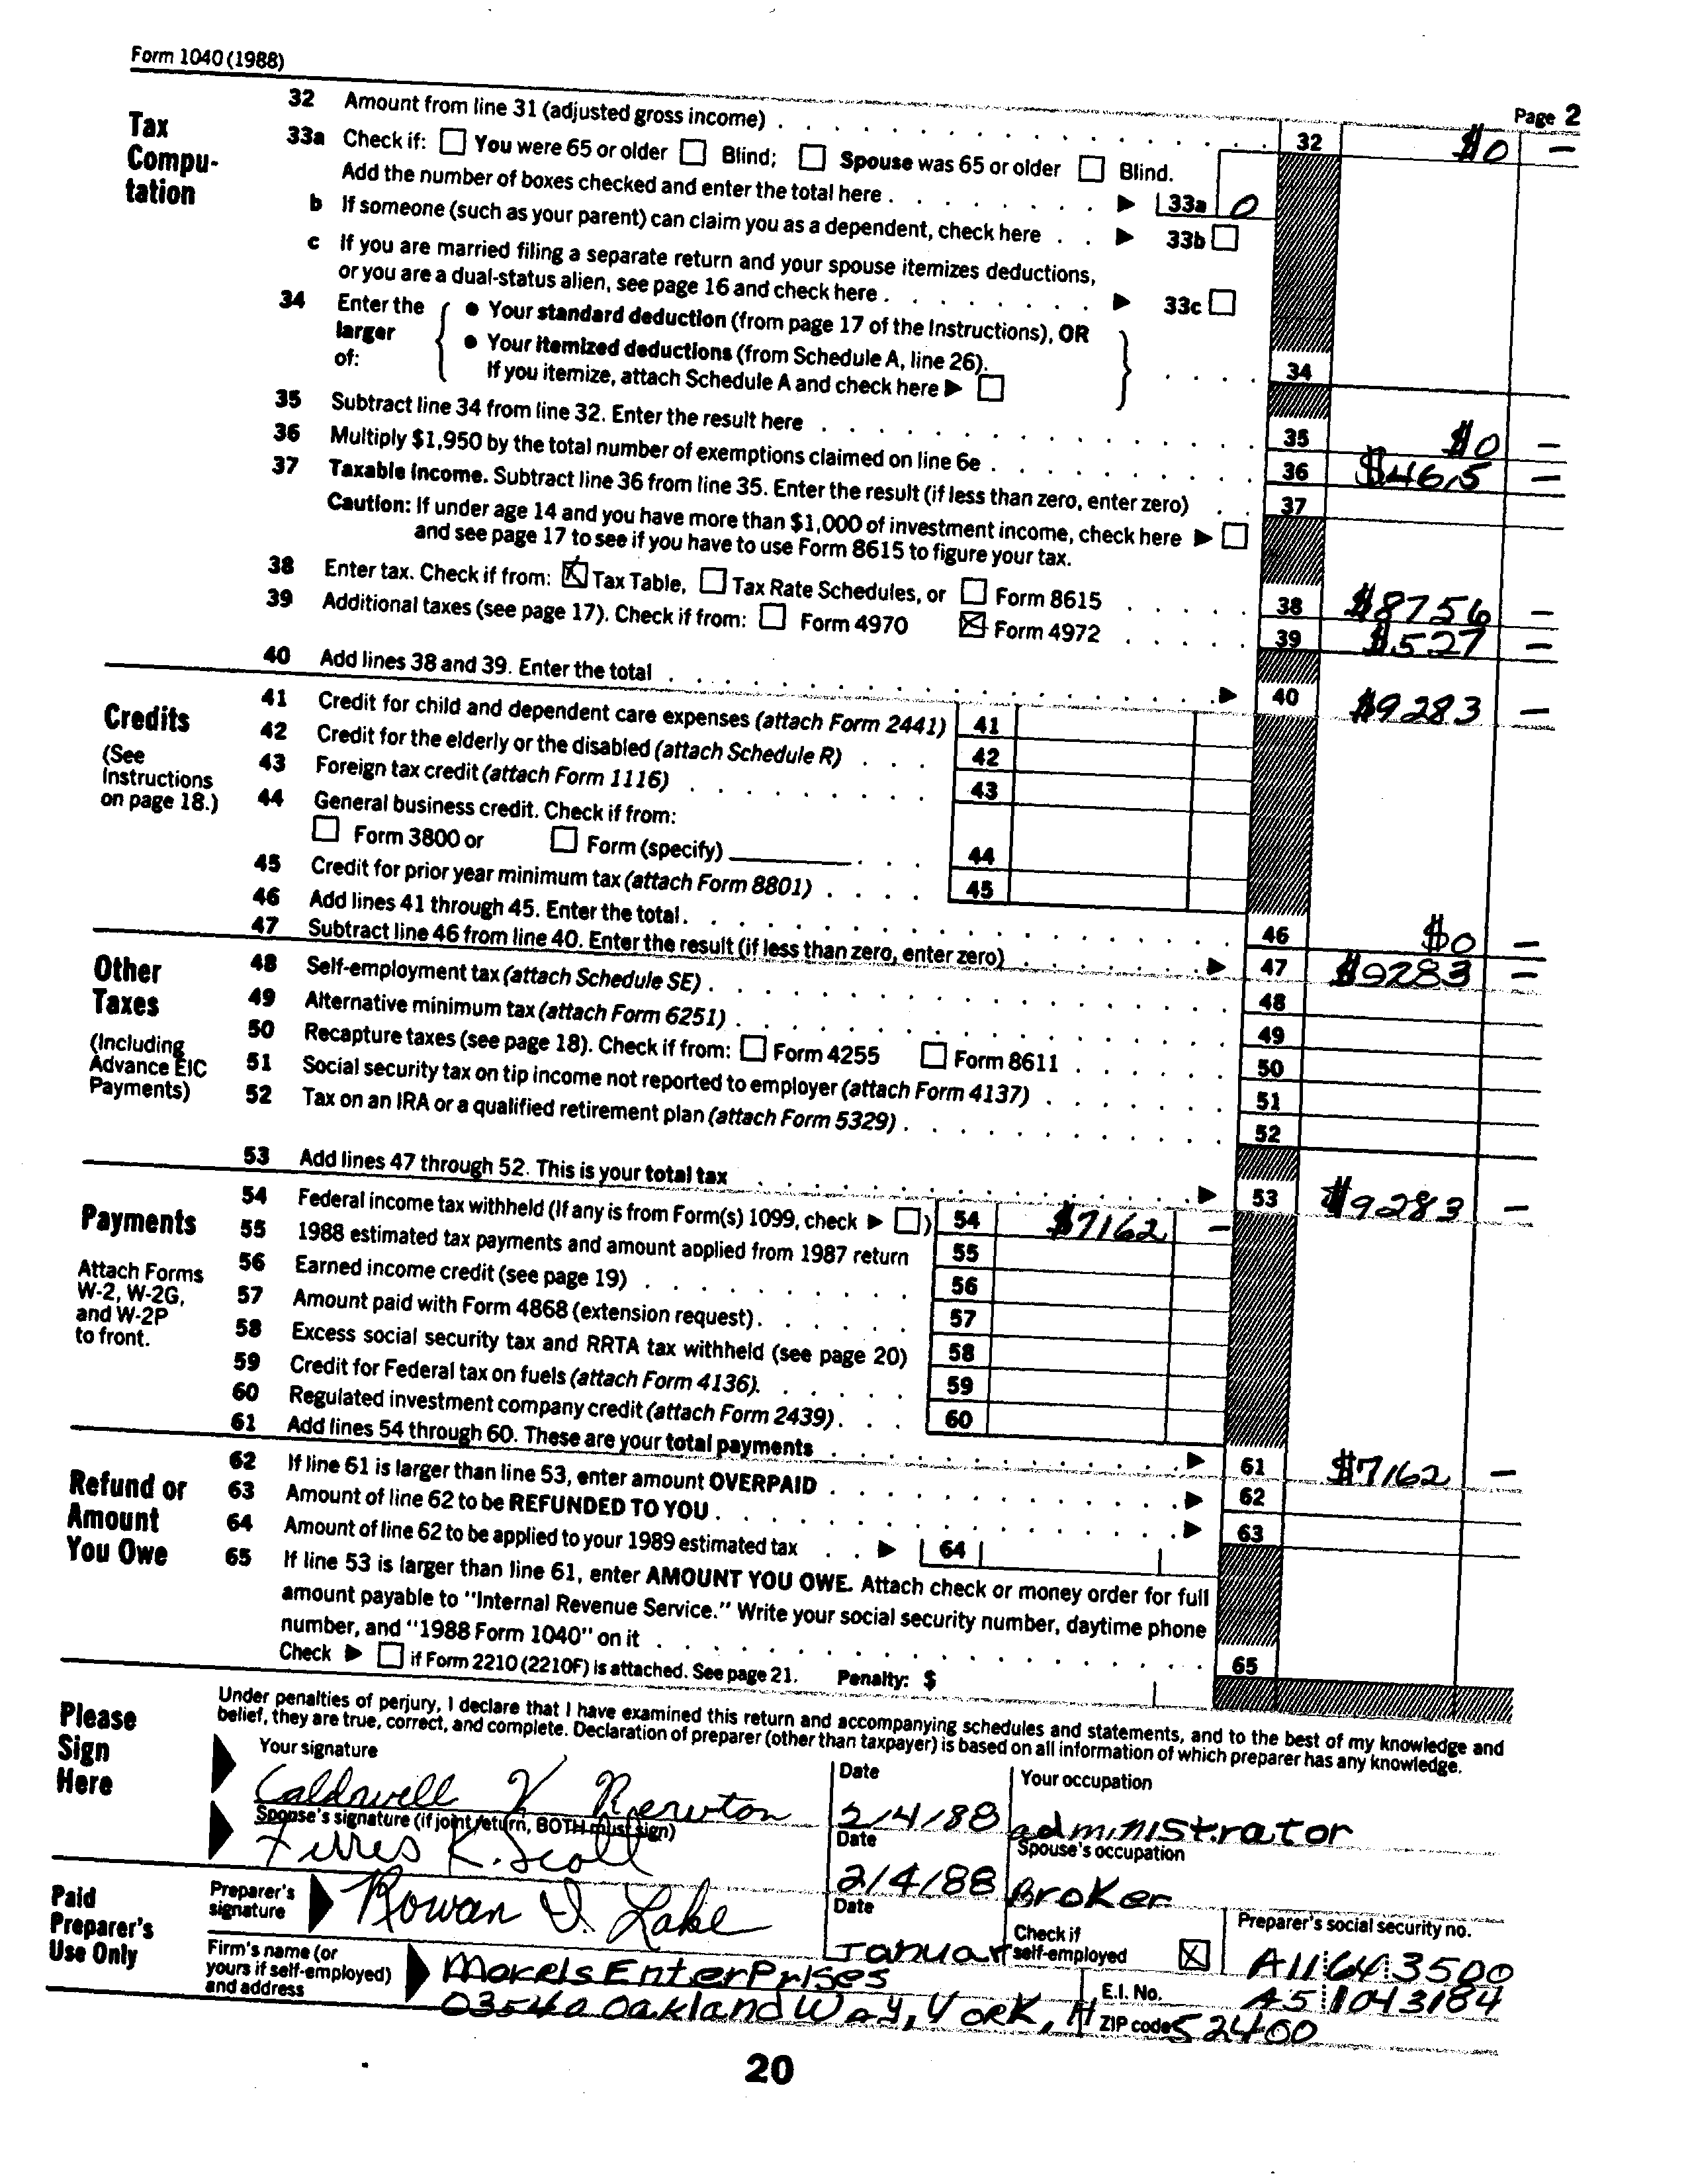 Form 1040 (1988)
Page 2
Tax Compu-tation
32 Amount from line 31 (adjusted gross income) 32 $0 –
33a Check if: You were 65 or older Blind; Spouse was 65 or older Blind.
Add the number of boxes checked and enter the total here 33a 0
b If someone (such as your parent) can claim you as a dependent, check here 33b
c If you are married filing a separate return and your spouse itemizes deductions,
or you are a dual-status alien, see page 16 and check here 33c
34 Enter the larger of:
● Your standard deduction (from page 17 of the Instructions), OR
● Your itemized deductions (from Schedule A, line 26).
If you itemize, attach Schedule A and check here 34
35 Subtract line 34 from line 32. Enter the result here 35 $0 –
36 Multiply $1,950 by the total number of exemptions claimed on line 6e 36 $465 –
37 Taxable income. Subtract line 36 from line 35. Enter the result (if less than zero, enter zero) 37
Caution: If under age 14 and you have more than $1,000 of investment income, check here
and see page 17 to see if you have to use Form 8615 to figure your tax.
38 Enter tax. Check if from: X Tax Table, Tax Rate Schedules, or Form 8615 38 $8756 –
39 Additional taxes (see page 17). Check if from: Form 4970 X Form 4972 39 $527 –
40 Add lines 38 and 39. Enter the total 40 $9283 –
Credits
(See Instructions on page 18.)
41 Credit for child and dependent care expenses (attach Form 2441) 41
42 Credit for the elderly or the disabled (attach Schedule R) 42
43 Foreign tax credit (attach Form 1116) 43
44 General business credit. Check if from:
Form 3800 or Form (specify) 44
45 Credit for prior year minimum tax (attach Form 8801) 45
46 Add lines 41 through 45. Enter the total. 46 $0 –
47 Subtract line 46 from line 40. Enter the result (if less than zero, enter zero) 47 $9283 –
Other Taxes
(Including Advance EIC Payments)
48 Self-employment tax (attach Schedule SE) 48
49 Alternative minimum tax (attach Form 6251) 49
50 Recapture taxes (see page 18). Check if from: Form 4255 Form 8611 50
51 Social security tax on tip income not reported to employer (attach Form 4137) 51
52 Tax on an IRA or a qualified retirement plan (attach Form 5329) 52
53 Add lines 47 through 52. This is your total tax 53 $9283 –
Payments
Attach Forms W-2, W-2G, and W-2P to front.
54 Federal income tax withheld (If any is from Form(s) 1099, check ) 54 $7162 –
55 1988 estimated tax payments and amount applied from 1987 return 55
56 Earned income credit (see page 19) 56
57 Amount paid with Form 4868 (extension request) 57
58 Excess social security tax and RRTA tax withheld (see page 20) 58
59 Credit for Federal tax on fuels (attach Form 4136). 59
60 Regulated investment company credit (attach Form 2439) 60
61 Add lines 54 through 60. These are your total payments 61 $7162 –
Refund or Amount You Owe
62 If line 61 is larger than line 53, enter amount OVERPAID 62
63 Amount of line 62 to be REFUNDED TO YOU 63
64 Amount of line 62 to be applied to your 1989 estimated tax 64
65 If line 53 is larger than line 61, enter AMOUNT YOU OWE. Attach check or money order for full
amount payable to "Internal Revenue Service." Write your social security number, daytime phone
number, and "1988 Form 1040" on it 65
Check if Form 2210 (2210F) is attached. See page 21. Penalty: $
Please Sign Here
Under penalties of perjury, I declare that I have examined this return and accompanying schedules and statements, and to the best of my knowledge and
belief, they are true, correct, and complete. Declaration of preparer (other than taxpayer) is based on all information of which preparer has any knowledge.
Your signature Date Your occupation
Caldwell V Newton 2/4/88 administrator
Spouse's signature (if joint return, BOTH must sign) Date Spouse's occupation
K. Scott 2/4/88 Broker
Paid Preparer's Use Only
Preparer's signature Rowan I. Lake Date Januar Check if self-employed X Preparer's social security no. A116643500
Firm's name (or yours if self-employed) and address Mokels Enterprises E.I. No. A51043184
0354a Oakland Way, York, H ZIP code 52400
20